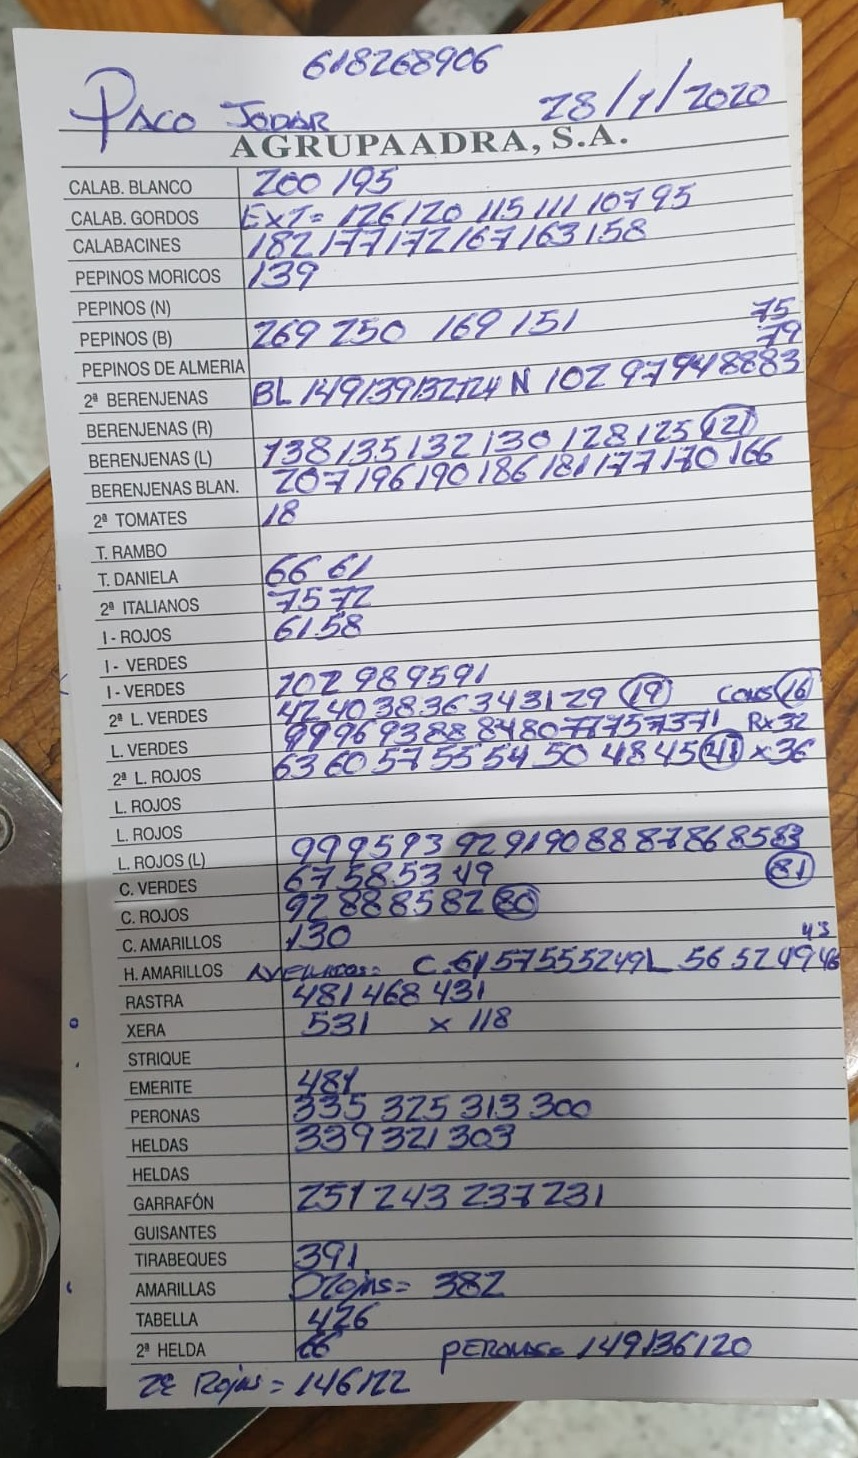 618268906
PACO JODAR 28/1/2020
AGRUPAADRA, S.A.
CALAB. BLANCO 200 195
CALAB. GORDOS EXT= 126 120 115 111 107 95
CALABACINES 182 177 172 167 163 158
PEPINOS MORICOS 139
PEPINOS (N)
PEPINOS (B) 269 250 169 151 75
79
PEPINOS DE ALMERIA
2ª BERENJENAS BL 149 139 132 124 N 102 97 94 88 83
BERENJENAS (R)
BERENJENAS (L) 138 135 132 130 128 125 121
BERENJENAS BLAN. 207 196 190 186 181 177 170 166
2ª TOMATES 18
T. RAMBO
T. DANIELA 66 61
2ª ITALIANOS 75 72
I - ROJOS 61 58
I - VERDES
I - VERDES 102 98 95 91
2ª L. VERDES 42 40 38 36 34 31 29 19 CONS 16
L. VERDES 99 96 93 88 84 80 77 75 73 71 Rx 32
2ª L. ROJOS 63 60 57 55 54 50 48 45 41 x 36
L. ROJOS
L. ROJOS
L. ROJOS (L) 99 95 93 92 91 90 88 87 86 85 83
81
C. VERDES 67 58 53 49
C. ROJOS 92 88 85 82 80
C. AMARILLOS 130
43
H. AMARILLOS C. 61 57 55 52 49 L 56 52 49 46
RASTRA 481 468 431
XERA 531 x 118
STRIQUE
EMERITE 481
PERONAS 335 325 313 300
HELDAS 339 321 303
HELDAS
GARRAFÓN 251 243 237 231
GUISANTES
TIRABEQUES 391
AMARILLAS = 382
TABELLA 426
2ª HELDA 66 PERONAS= 149 136 120
2ª Rojas = 146 122